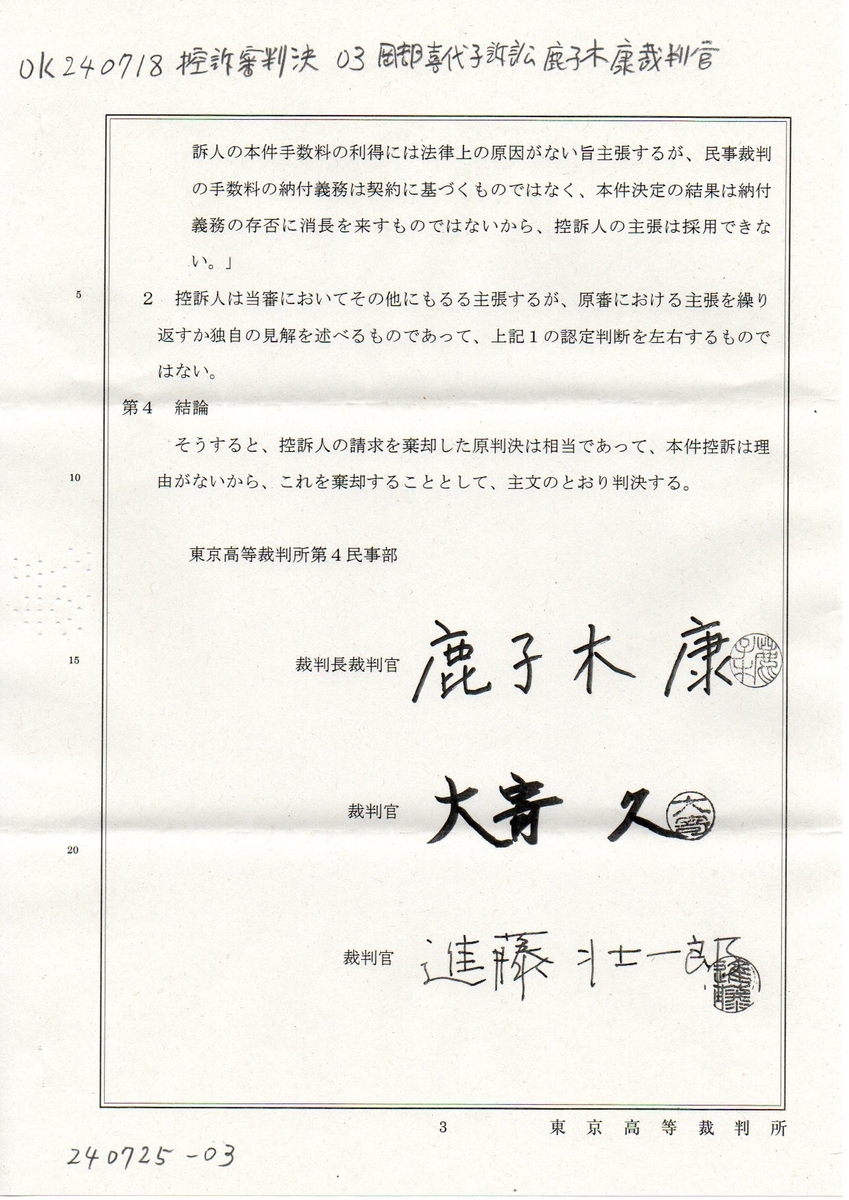 OK240718 控訴審判決 03 岡部喜代子訴訟 鹿子木康裁判官
訴人の本件手数料の利得には法律上の原因がない旨主張するが、民事裁判
の手数料の納付義務は契約に基づくものではなく、本件決定の結果は納付
義務の存否に消長を来すものではないから、控訴人の主張は採用できな
い。」
5
2 控訴人は当審においてその他にもるる主張するが、原審における主張を繰り
返すか独自の見解を述べるものであって、上記1の認定判断を左右するもので
はない。
第4 結論
そうすると、控訴人の請求を棄却した原判決は相当であって、本件控訴は理
10
由がないから、これを棄却することとして、主文のとおり判決する。
東京高等裁判所第4民事部
15
裁判長裁判官 鹿子木 康
裁判官 大寄 久
大寄
20
裁判官 進藤 壮一郎
進藤
3 東京高等裁判所
240725-03